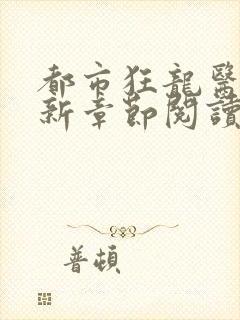 都市狂龍醫
新章節閱讀
普頓